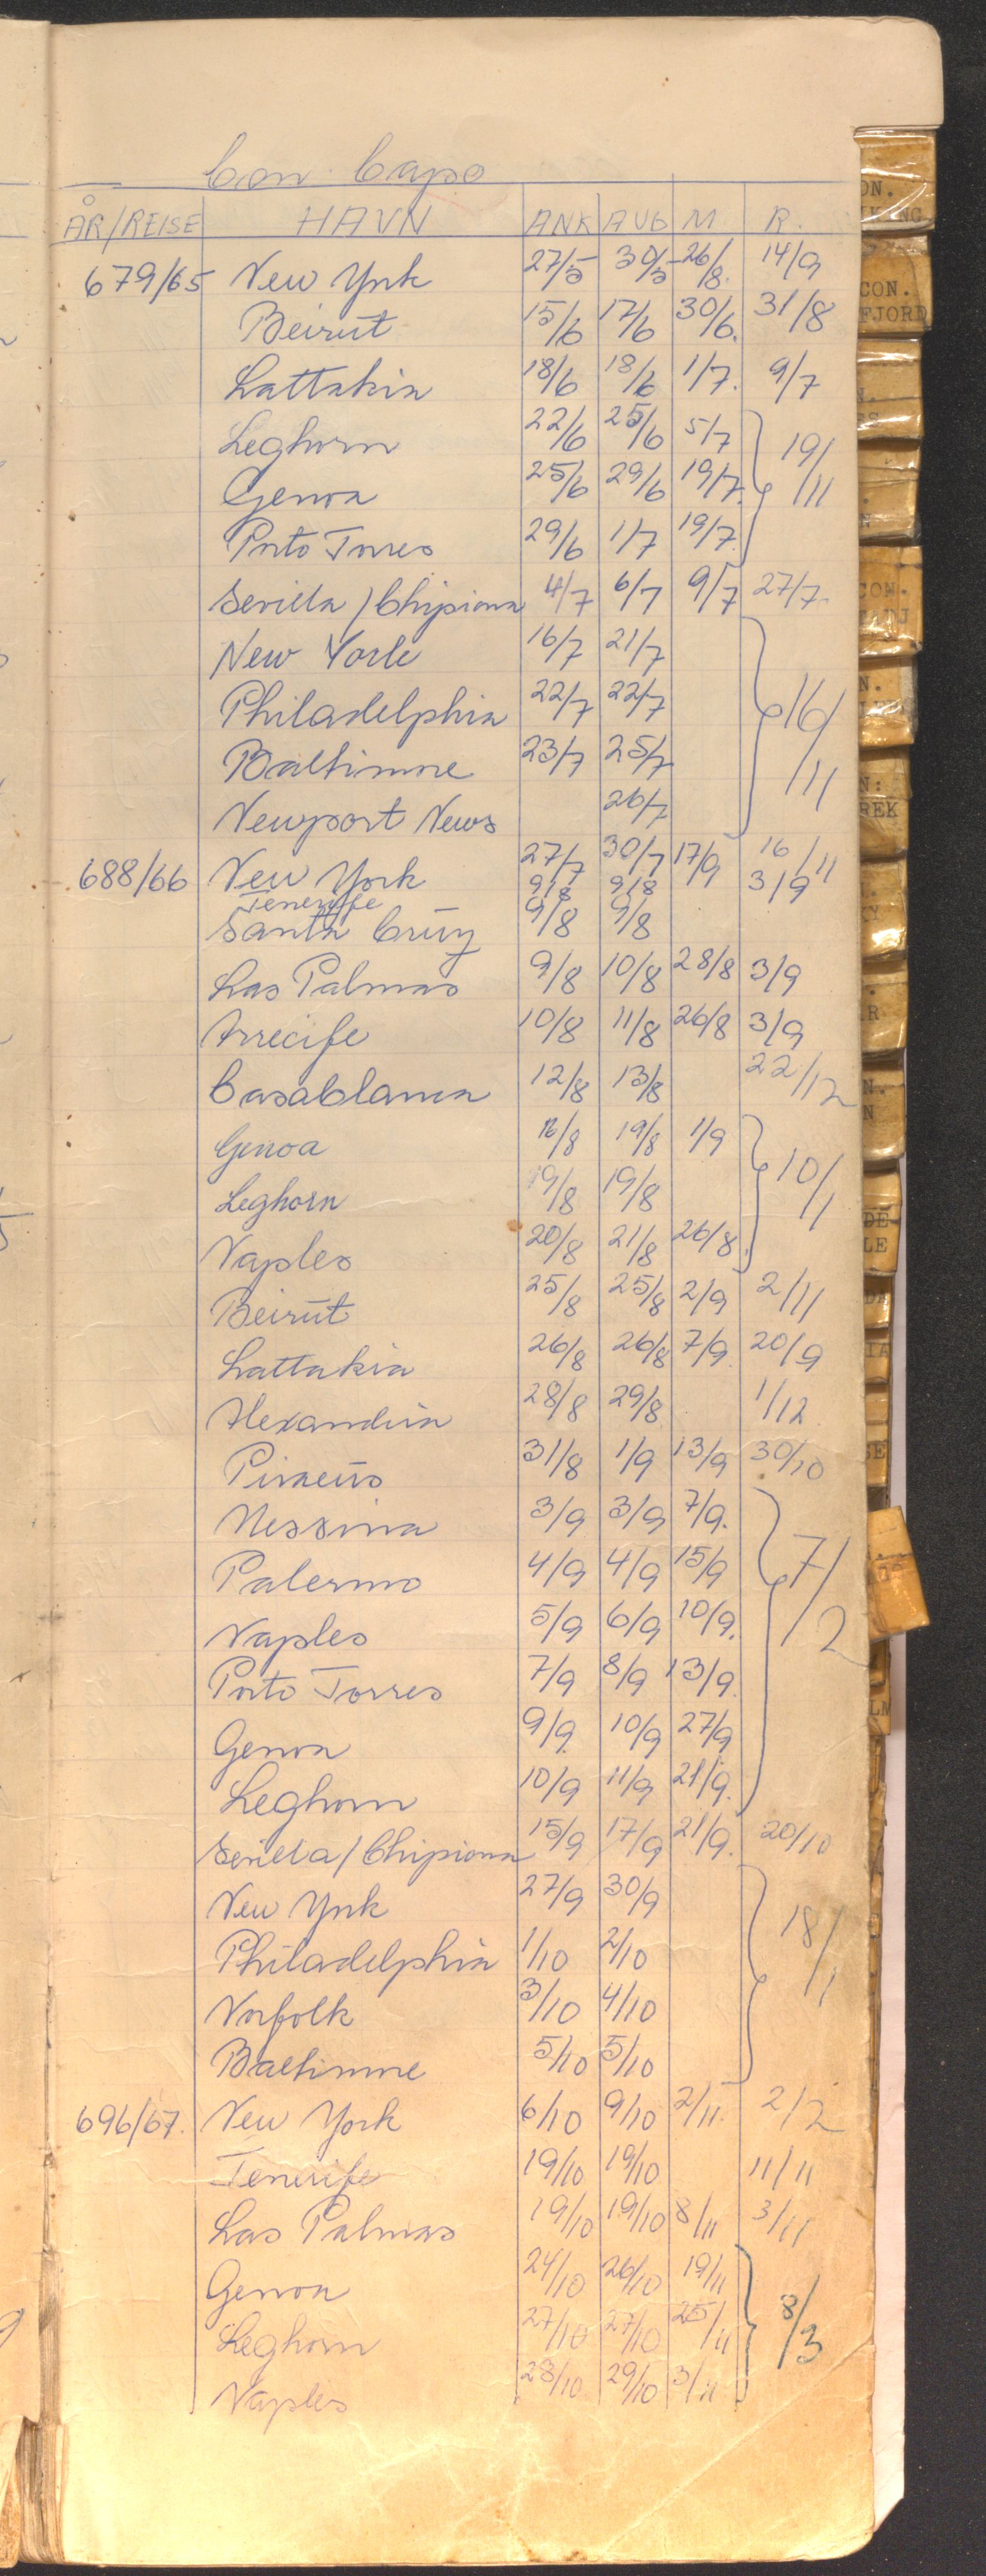 Con Capo
ÅR/REISE HAVN ANK AVG M R.
679/65 New York 27/5 30/5 26/8. 14/9
Beirut 15/6 17/6 30/6. 31/8
Lattakia 18/6 18/6 1/7. 9/7
Leghorn 22/6 25/6 5/7 19/11
Genoa 25/6 29/6 19/7.
Porto Torres 29/6 1/7 19/7.
Sevilla/Chipiona 4/7 6/7 9/7 27/7.
New York 16/7 21/7 16/11
Philadelphia 22/7 22/7
Baltimore 23/7 25/7
Newport News 26/7
688/66 New York 27/7 30/7 17/9 16/11
Teneriffe 9/8 9/8 3/9
Santa Cruz 9/8 9/8
Las Palmas 9/8 10/8 28/8 3/9
Arrecife 10/8 11/8 26/8 3/9
Casablanca 12/8 13/8 22/12
Genoa 16/8 19/8 1/9 10/1
Leghorn 19/8 19/8
Naples 20/8 21/8 26/8.
Beirut 25/8 25/8 2/9 2/11
Lattakia 26/8 26/8 7/9. 20/9
Alexandria 28/8 29/8 1/12.
Piraeus 31/8 1/9 13/9 30/10
Messina 3/9 3/9 7/9. 7/2
Palermo 4/9 4/9 15/9
Naples 5/9 6/9 10/9.
Porto Torres 7/9 8/9 13/9.
Genoa 9/9. 10/9 27/9
Leghorn 10/9 11/9 21/9.
Sevilla/Chipiona 15/9 17/9 21/9. 20/10
New York 27/9 30/9 18/1
Philadelphia 1/10 2/10
Norfolk 3/10 4/10
Baltimore 5/10 5/10
696/67. New York 6/10 9/10 2/11. 2/2
Tenerife 19/10 19/10 11/11
Las Palmas 19/10 19/10 8/11 3/11
Genoa 24/10 26/10 19/11 8/3
Leghorn 27/10 27/10 25/11
Naples 28/10 29/10 3/11
CON.
FJORD
CON.